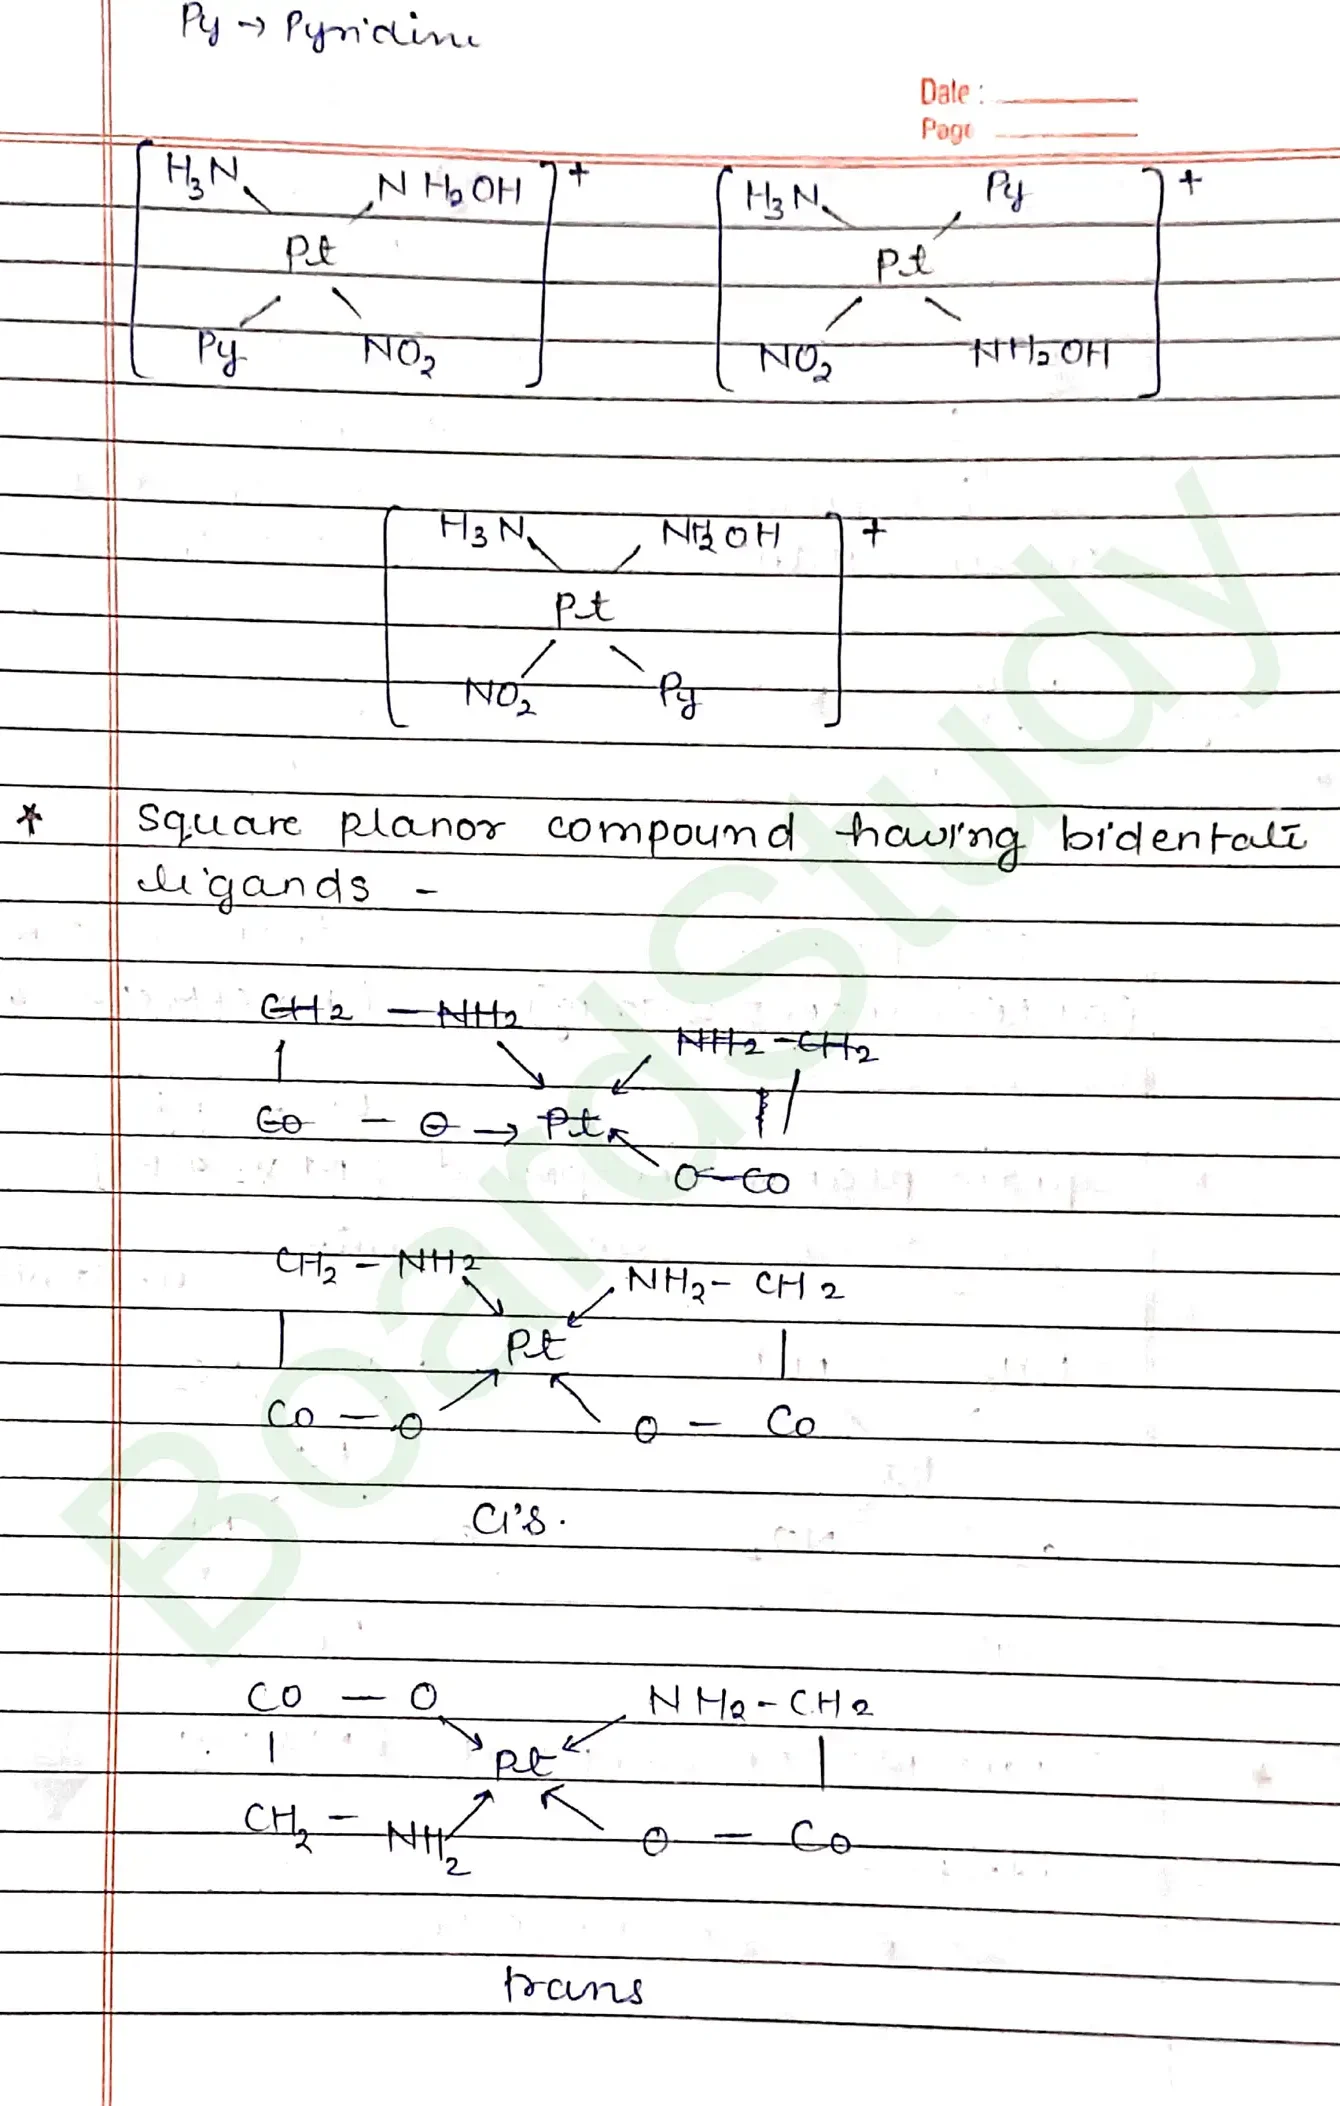 Py → Pyridine
Date :
Page
[ H₃N NH₂OH ]⁺ [ H₃N Py ]⁺
Pt Pt
Py NO₂ NO₂ NH₂OH
[ H₃N NH₂OH ]⁺
Pt
NO₂ Py
* Square planor compound having bidentate
ligands -
CH₂ — NH₂
NH₂ - CH₂
CO — O → Pt
O — CO
CH₂ - NH₂
NH₂ - CH₂
Pt
CO — O O — CO
Cis.
CO — O NH₂ - CH₂
Pt
CH₂ - NH₂ O — CO
trans
BoardStudy